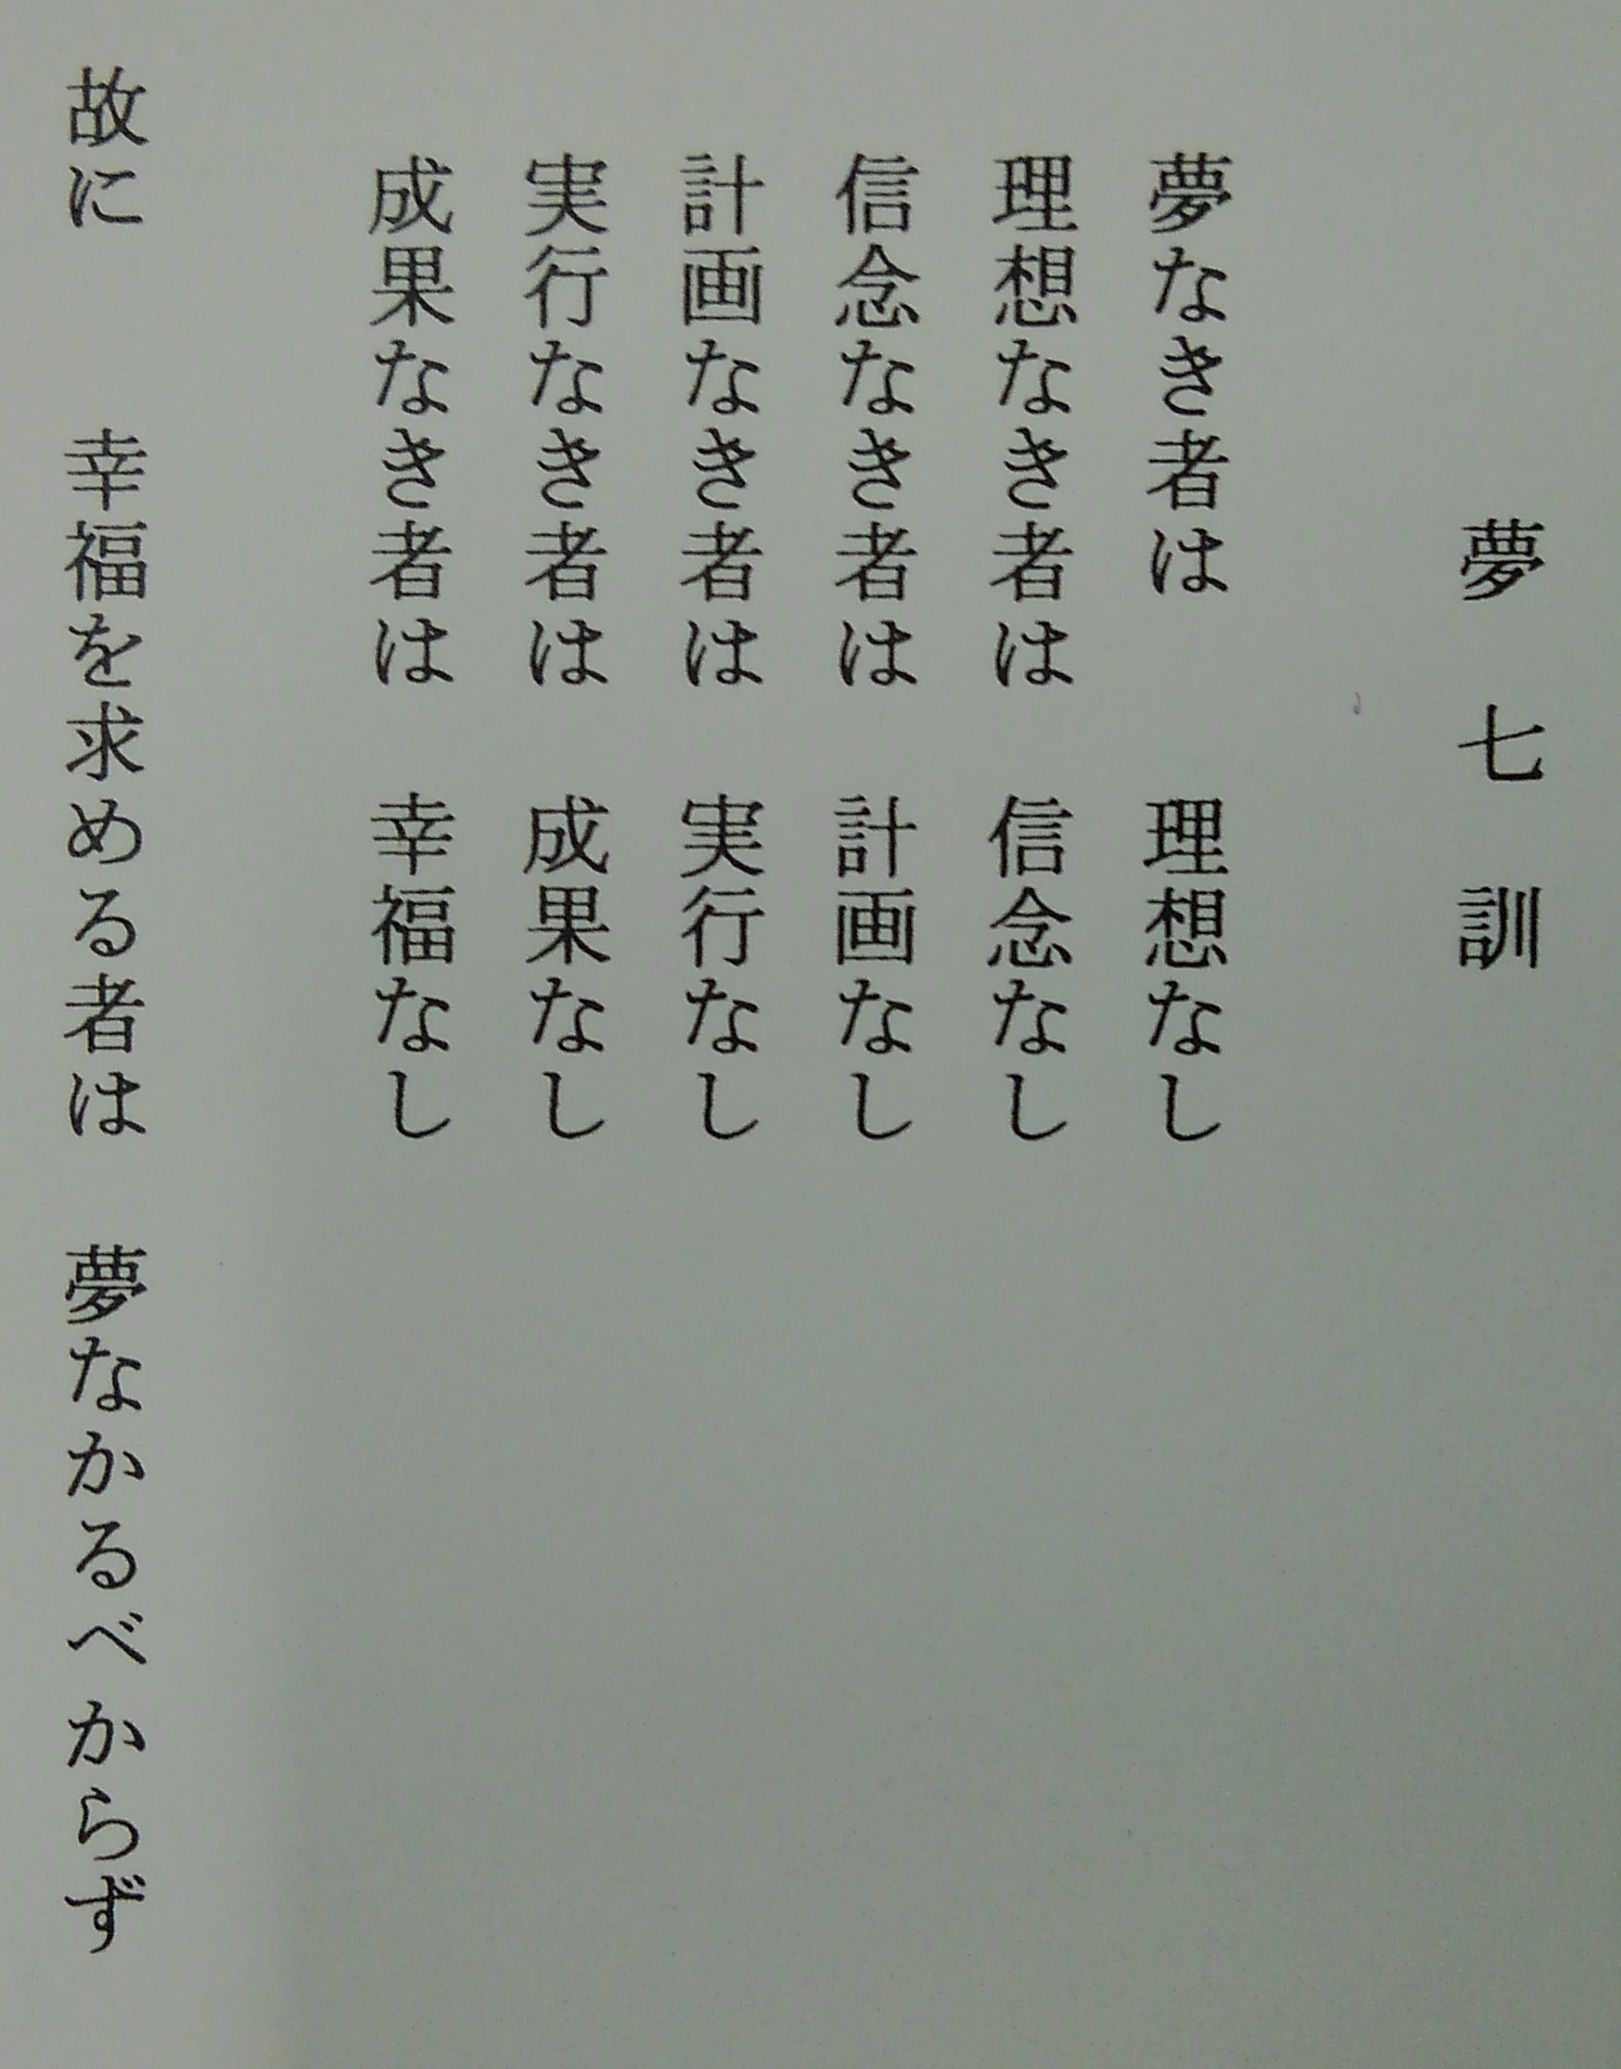 夢七訓
夢なき者は　理想なし
理想なき者は　信念なし
信念なき者は　計画なし
計画なき者は　実行なし
実行なき者は　成果なし
成果なき者は　幸福なし
故に　　幸福を求める者は　夢なかるべからず